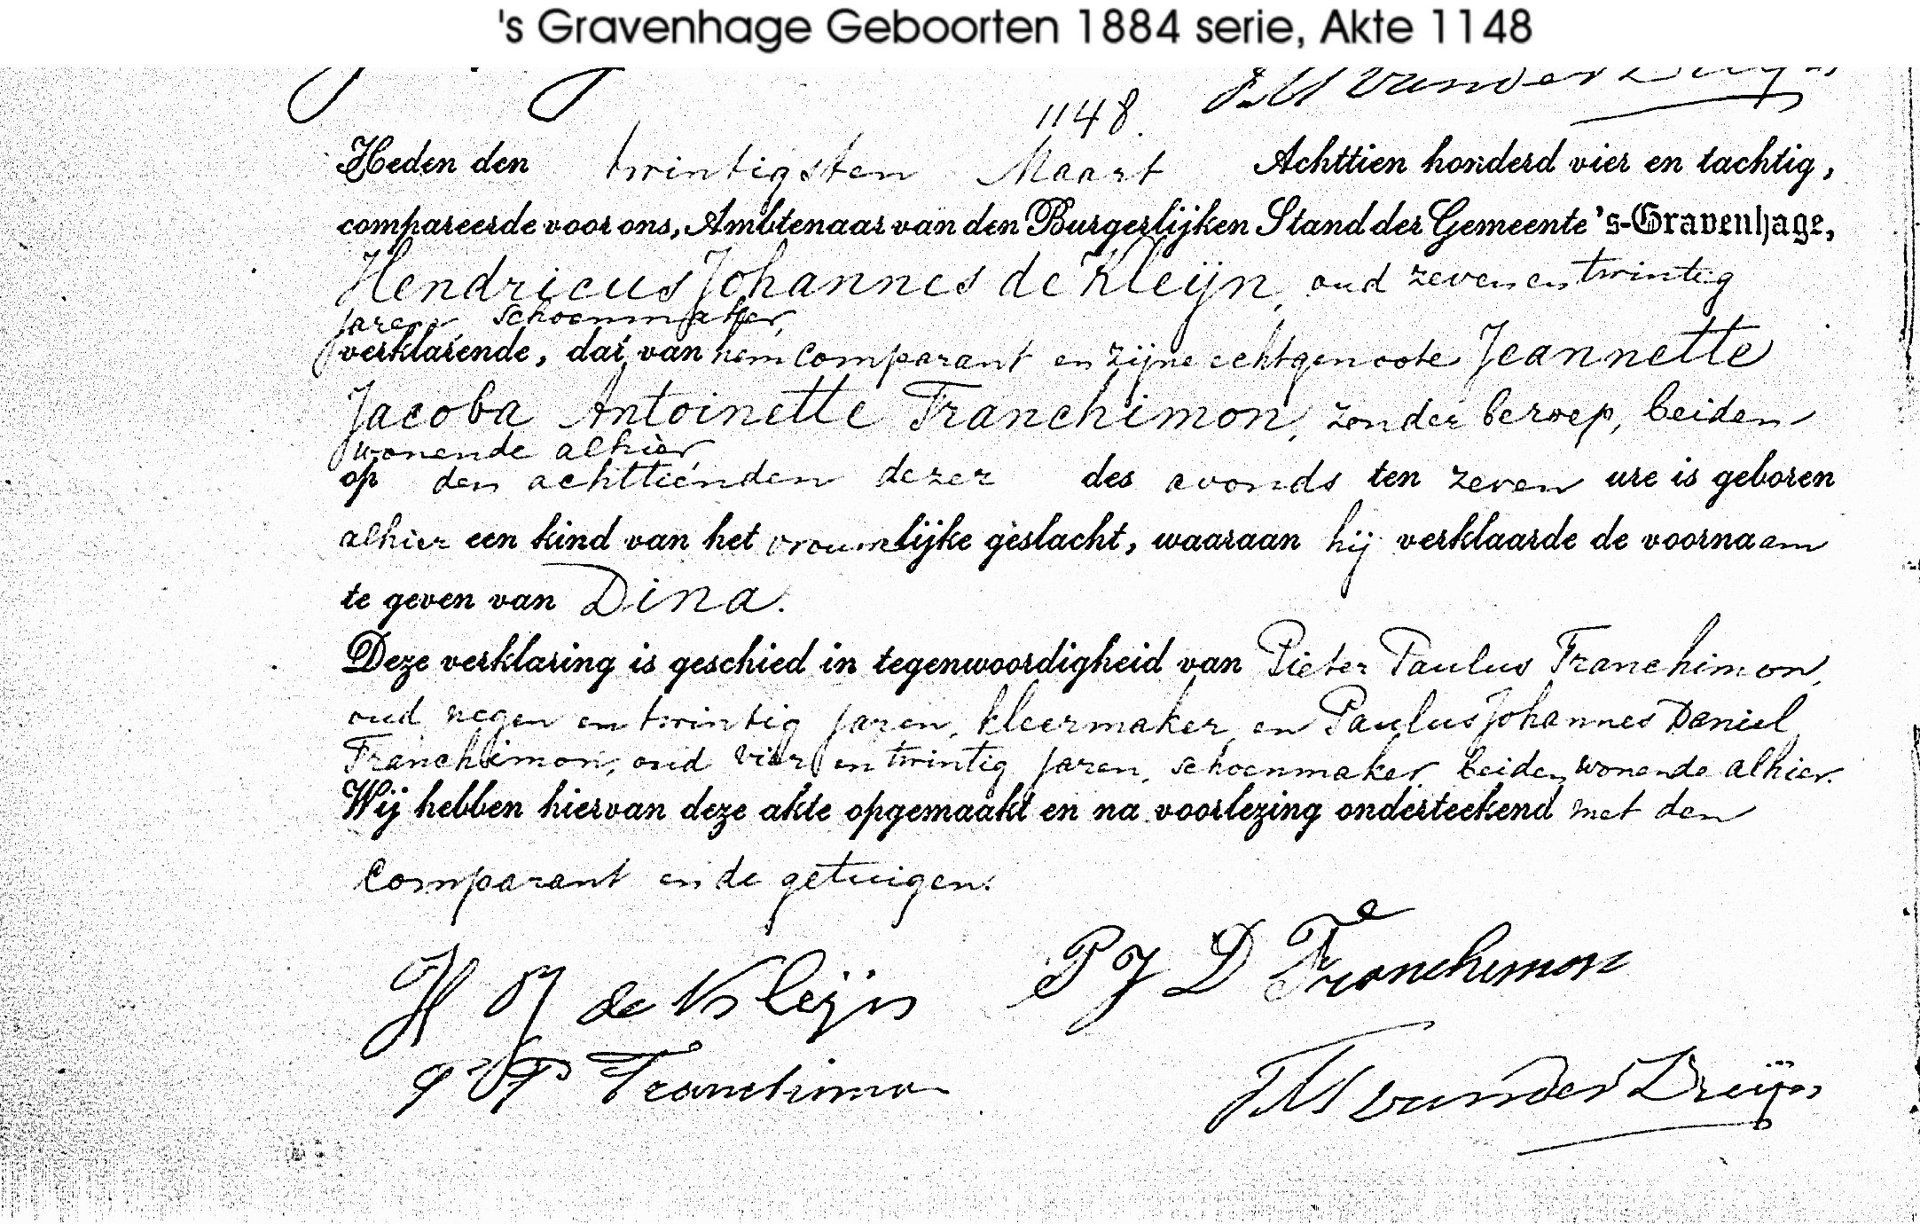 's Gravenhage Geboorten 1884 serie, Akte 1148
1148.
Heden den twintigsten Maart Achttien honderd vier en tachtig,
compareerde voor ons, Ambtenaar van den Burgerlijken Stand der Gemeente 's-Gravenhage,
Hendricus Johannes de Kleijn, oud zeven en twintig
jaren, schoenmaker,
verklarende, dat van hem comparant en zijne echtgenoote Jeannette
Jacoba Antoinette Franchimon, zonder beroep, beiden
wonende alhier,
op den achttienden dezer des avonds ten zeven ure is geboren
alhier een kind van het vrouwlijke geslacht, waaraan hij verklaarde de voornaam
te geven van Dina.
Deze verklaring is geschied in tegenwoordigheid van Pieter Paulus Franchimon,
oud negen en twintig jaren, kleermaker, en Paulus Johannes Daniel
Franchimon, oud vier en twintig jaren, schoenmaker, beiden wonende alhier.
Wij hebben hiervan deze akte opgemaakt en na voorlezing onderteekend met den
comparant en de getuigen.
P J D Franchimon
H J de Kleijn
P P Franchimon
van der